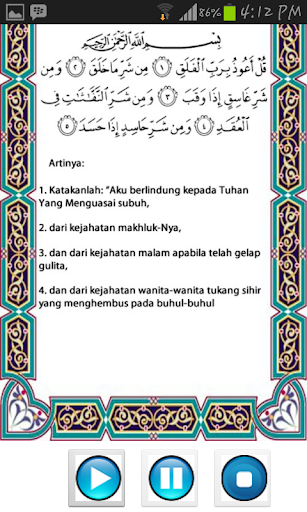 86% 4:12 PM
بِسْمِ ٱللَّهِ ٱلرَّحْمَٰنِ ٱلرَّحِيمِ
قُلْ أَعُوذُ بِرَبِّ ٱلْفَلَقِ ١ مِن شَرِّ مَا خَلَقَ ٢ وَمِن
شَرِّ غَاسِقٍ إِذَا وَقَبَ ٣ وَمِن شَرِّ ٱلنَّفَّٰثَٰتِ فِى
ٱلْعُقَدِ ٤ وَمِن شَرِّ حَاسِدٍ إِذَا حَسَدَ ٥
Artinya:
1. Katakanlah: “Aku berlindung kepada Tuhan
Yang Menguasai subuh,
2. dari kejahatan makhluk-Nya,
3. dan dari kejahatan malam apabila telah gelap
gulita,
4. dan dari kejahatan wanita-wanita tukang sihir
yang menghembus pada buhul-buhul